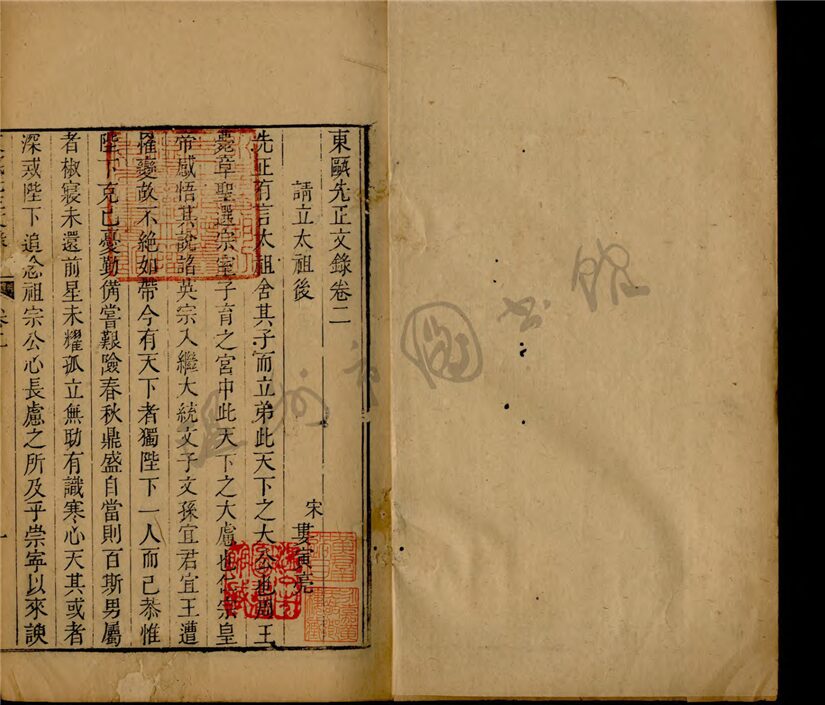 東甌先正文錄卷二
請立太祖後
宋 婁寅亮
先正有言太祖舍其子而立弟此天下之大公也周王
薨章聖選宗室子育之宮中此天下之大慮也仁宗皇
帝感悟其說詔英宗入繼大統文子文孫宜君宜王遭
罹變故不絕如帶今有天下者獨陛下一人而已恭惟
陛下克己憂勤備嘗艱險春秋鼎盛自當則百斯男屬
者椒寢未還前星未耀孤立無助有識寒心天其或者
深戒陛下追念祖宗公心長慮之所及乎崇寧以來諛
溫州市圖书館